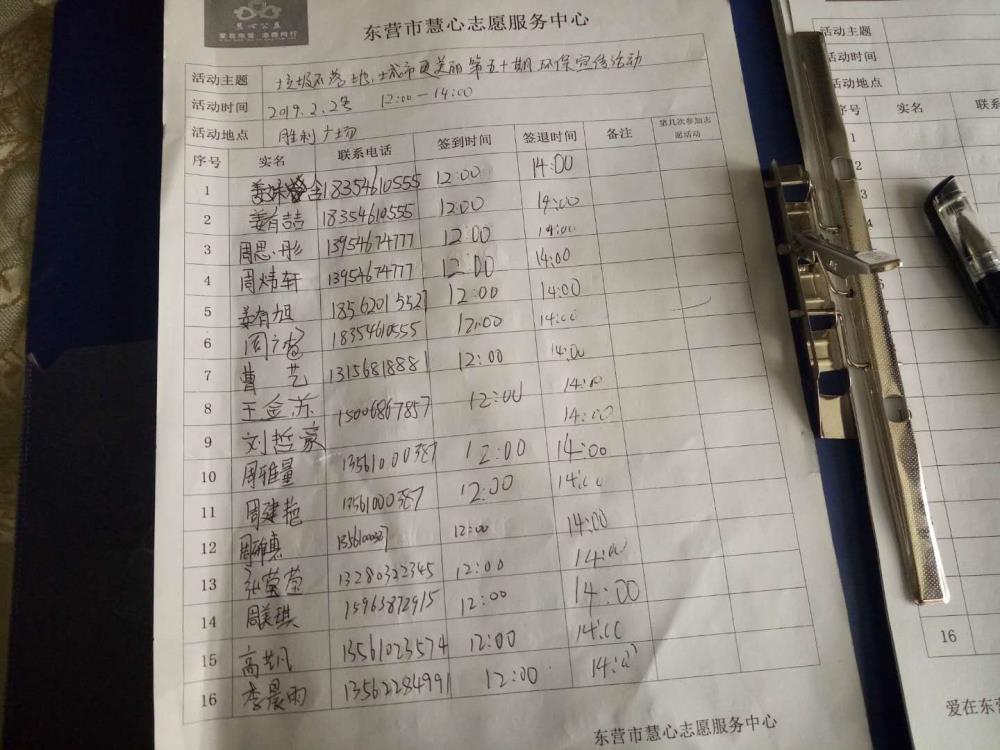 慧心公益
爱在东营 志愿同行
东营市慧心志愿服务中心
活动主题 垃圾不落地,城市更美丽第五十期环保宣传活动
活动时间 2019.2.2号 12:00-14:00
活动地点 胜利广场
序号 实名 联系电话 签到时间 签退时间 备注 第几次参加志愿活动
1 18354610555 12:00 14:00
2 姜有喆 18354610555 12:00 14:00
3 周思彤 13954674777 12:00 14:00
4 周炜轩 13954674777 12:00 14:00
5 姜有旭 18562015527 12:00 14:00
6 18354610555 12:00 14:00
7 曹艺 13156818881 12:00 14:00
8 王金苏 15006867857 12:00 14:00
9 刘哲豪 14:00
10 周雅量 13561000387 12:00 14:00
11 周建艳 13561000387 12:00 14:00
12 周雅惠 13561000387 12:00 14:00
13 张莹莹 13280322345 12:00 14:00
14 周美琪 15963872915 12:00 14:00
15 高艺凡 13561023574 12:00 14:00
16 李晨雨 13562284991 12:00 14:00
东营市慧心志愿服务中心
活动主题
活动时间
活动地点
序号 实名 联系
1
2
3
4
16
爱在东营